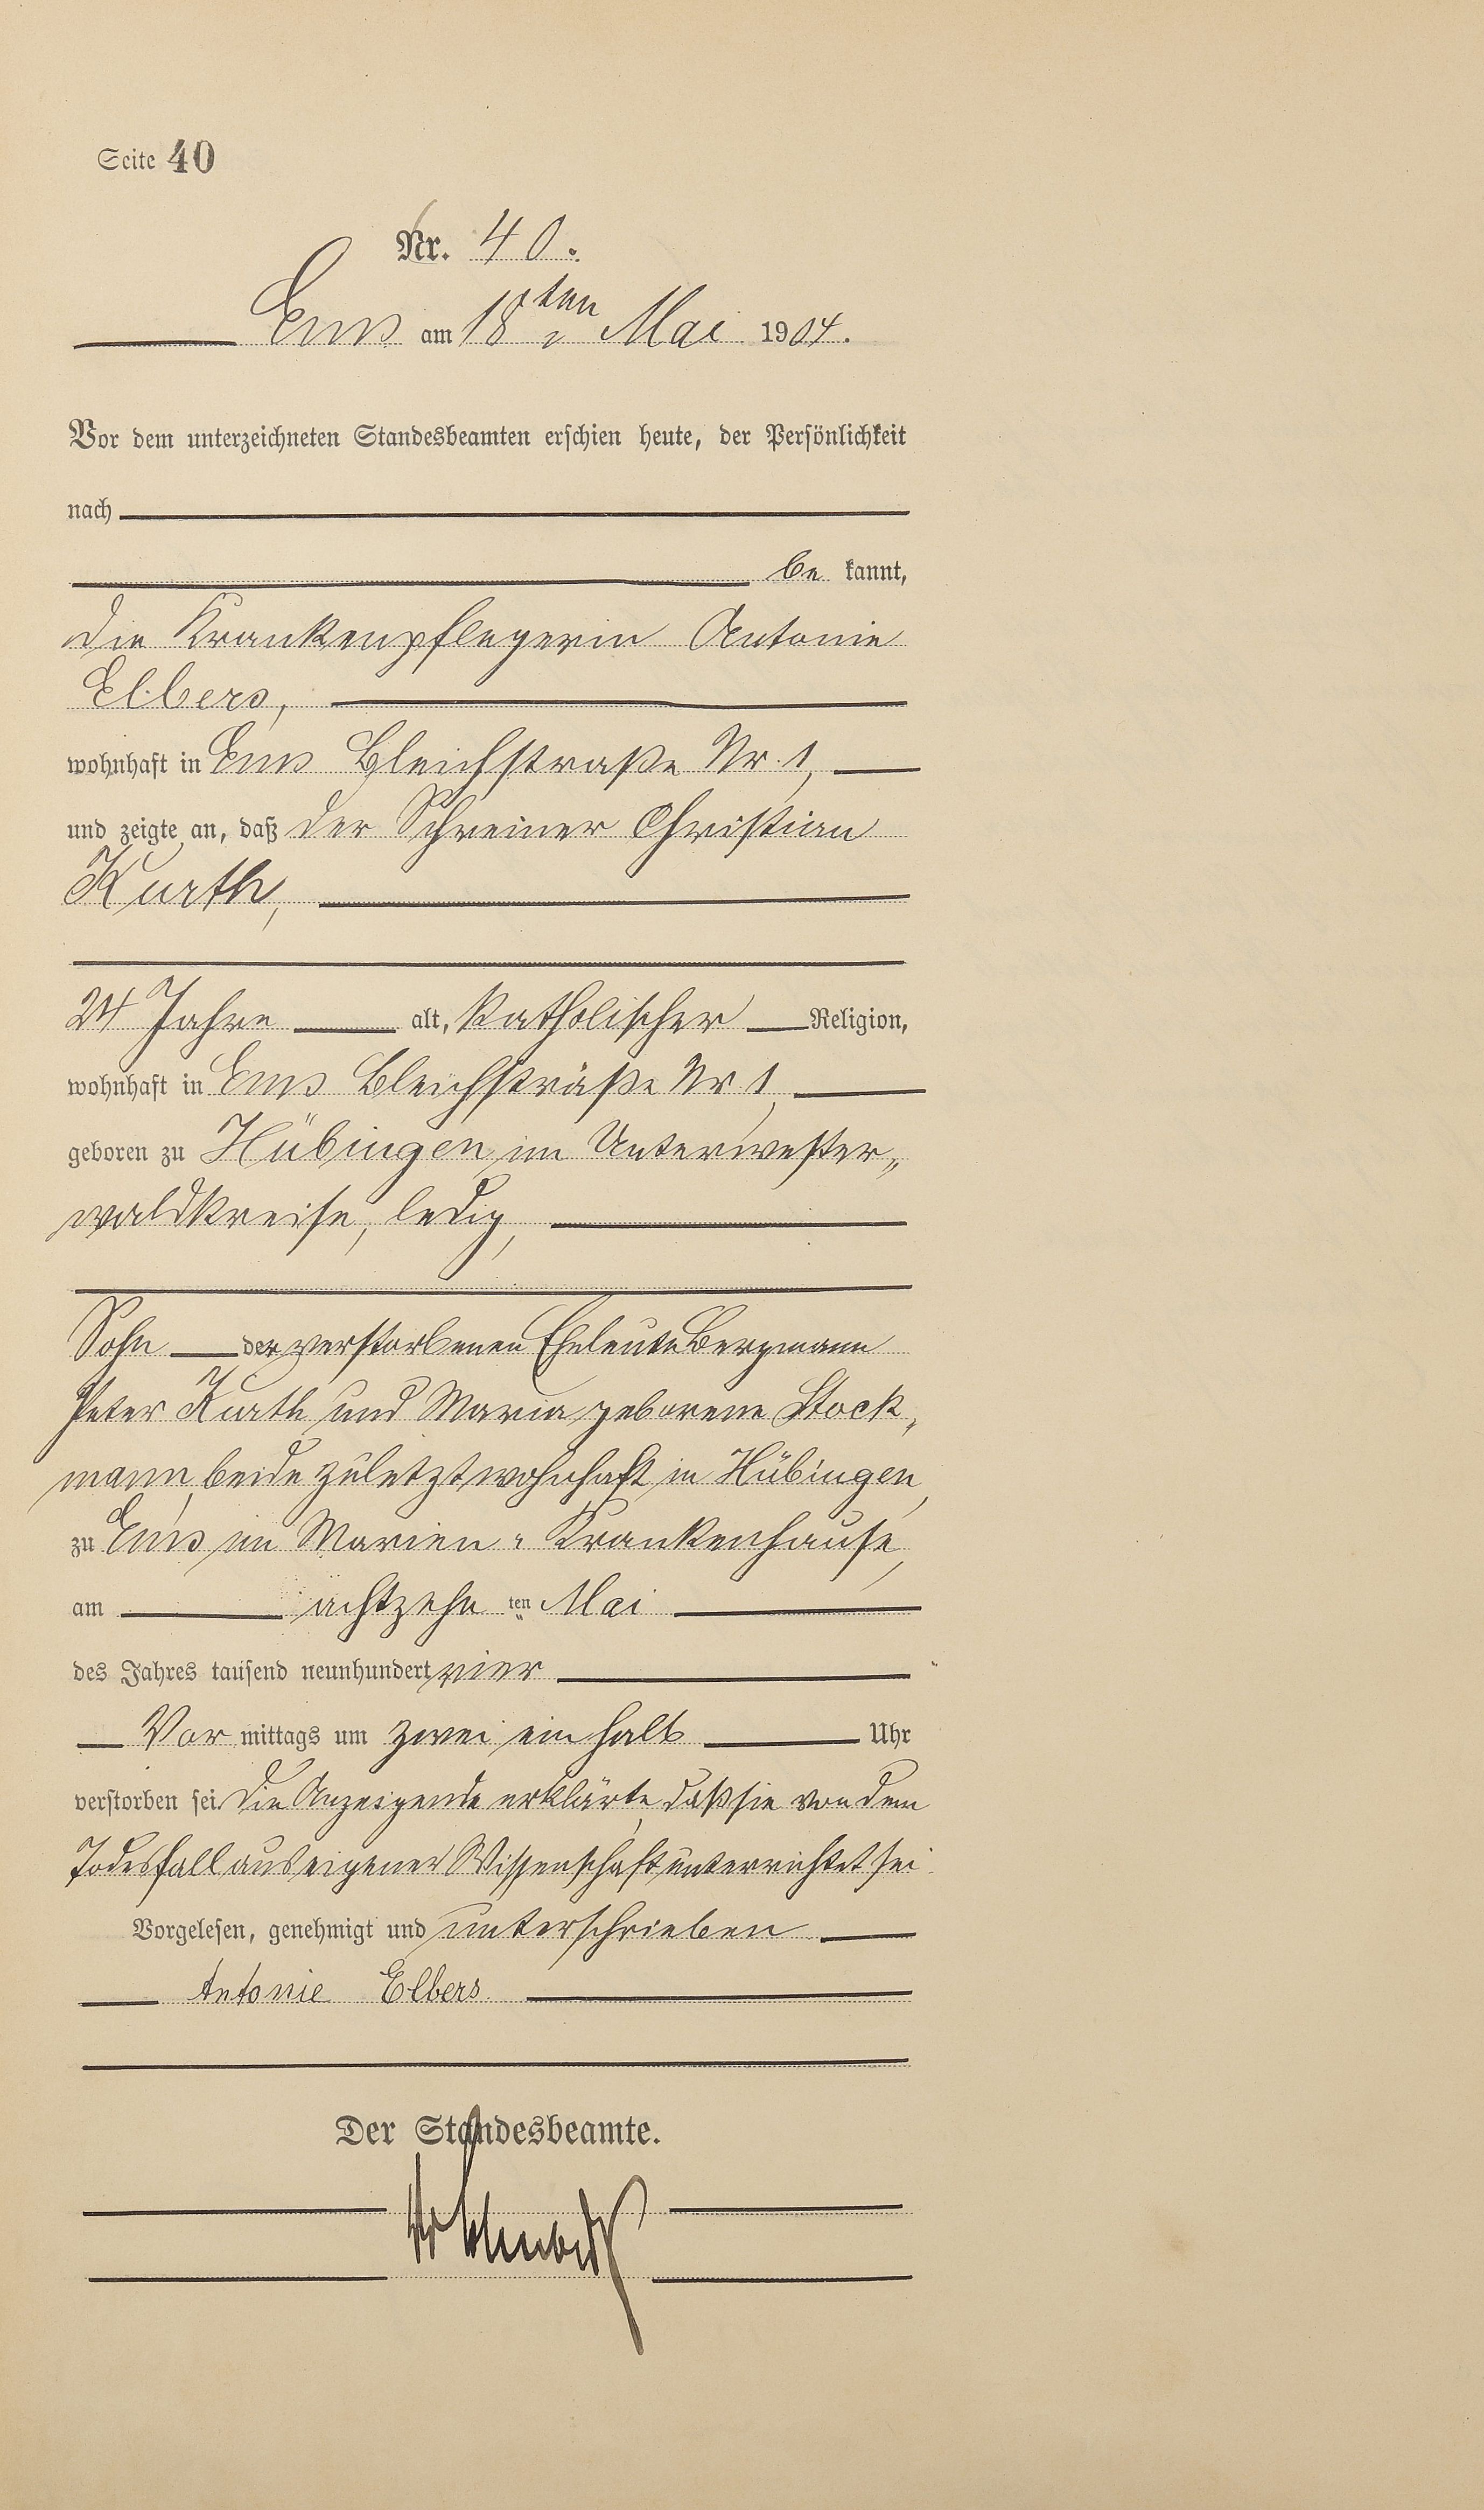 Seite 40
Nr. 40.
Ems am 18ten Mai 1904.
Vor dem unterzeichneten Standesbeamten erschien heute, der Persönlichkeit
nach
be kannt,
die Krankenpflegerin Antonie
Elbers,
wohnhaft in Ems Bleichstraße Nr. 1,
und zeigte an, daß der Schreiner Christian
Kurth,
24 Jahre alt, katholischer Religion,
wohnhaft in Ems Bleichstraße Nr 1,
geboren zu Hübingen im Unterwester„
waldkreise, ledig,
Sohn der verstorbenen Eheleute Bergmann
Peter Kurth und Maria geborene Stock„
mann, beide zuletzt wohnhaft in Hübingen,
zu Ems im Marien-Krankenhause,
am achtzehn ten Mai
des Jahres tausend neunhundert vier
Vor mittags um zwei ein halb Uhr
verstorben sei. Die Anzeigende erklärte, daß sie von dem
Todesfall aus eigener Wissenschaft unterrichtet sei.
Vorgelesen, genehmigt und unterschrieben
Antonie Elbers
Der Standesbeamte.